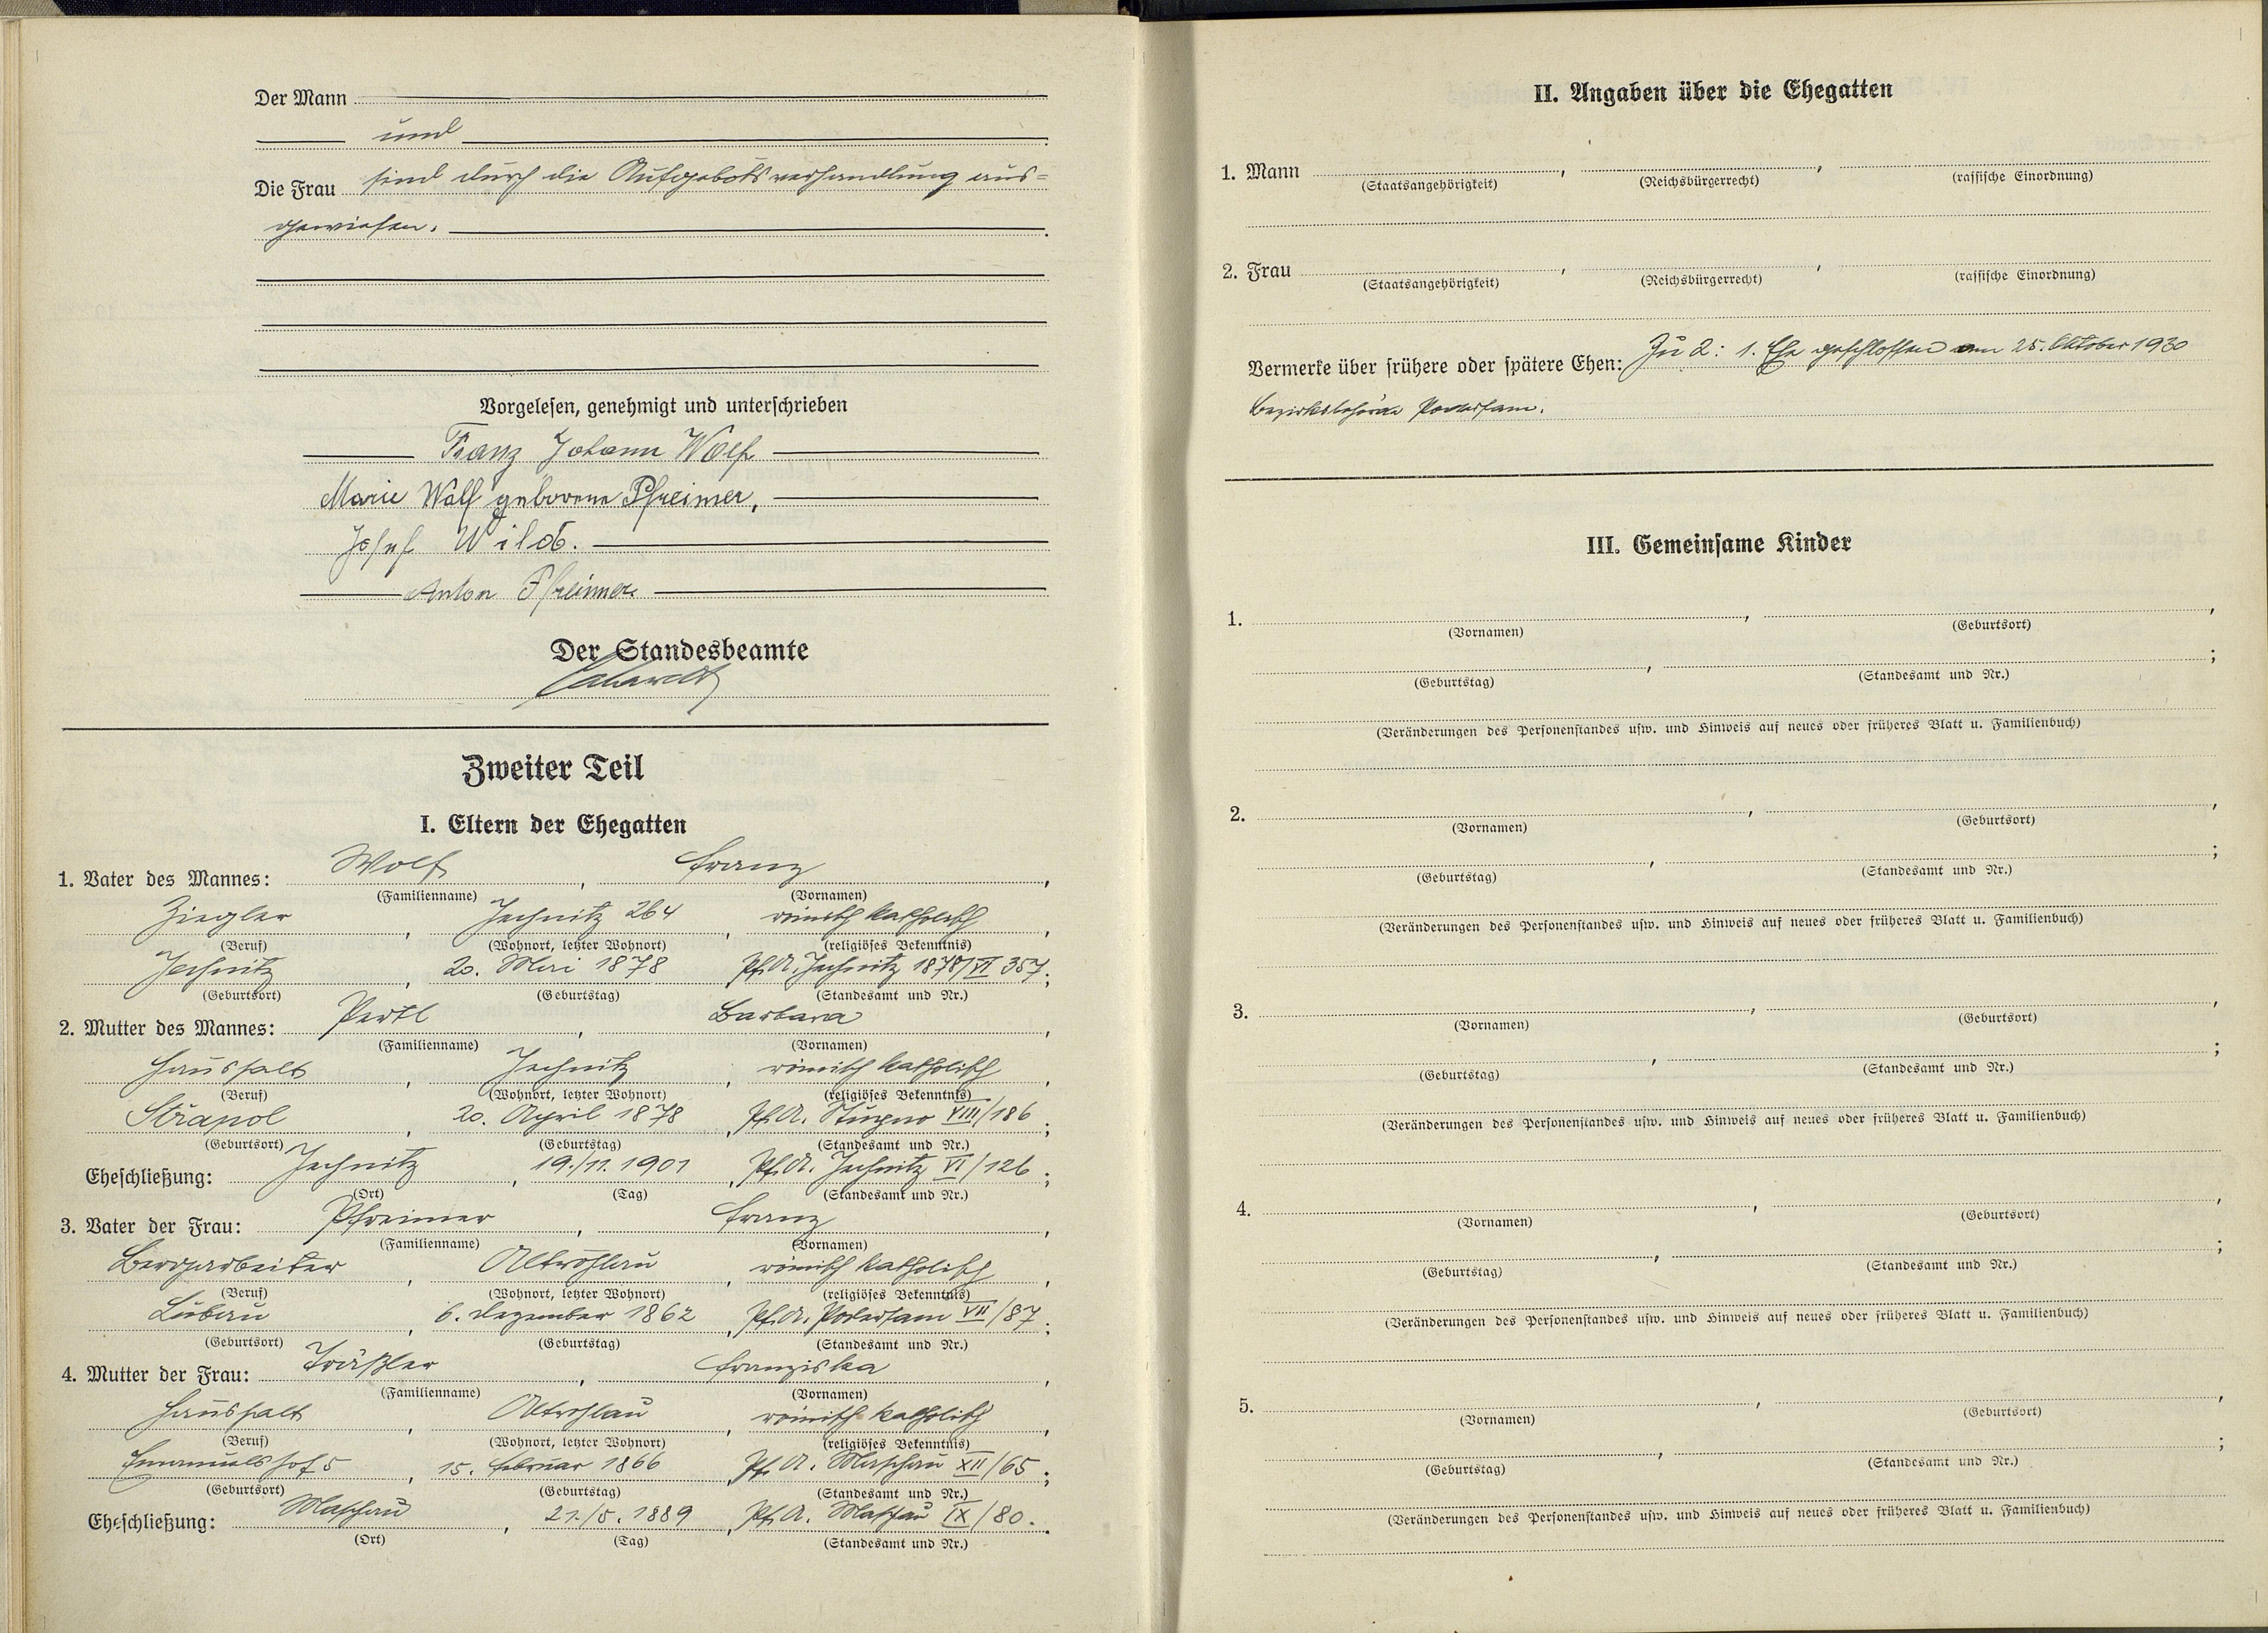 Der Mann
und
Die Frau sind durch die Aufgebotsverhandlung aus=
gewiesen.
Vorgelesen, genehmigt und unterschrieben
Franz Johann Wolf
Marie Wolf geborene Pfreimer,
Josef Wild.
Anton Pfreimer
Der Standesbeamte
Zweiter Teil
I. Eltern der Ehegatten
1. Vater des Mannes: Wolf, Franz,
(Familienname) (Vornamen)
Ziegler, Jechnitz 264, römisch katholisch,
(Beruf) (Wohnort, letzter Wohnort) (religiöses Bekenntnis)
Jechnitz, 20. Mai 1878 Pf.A. Jechnitz 1878/VI 357;
(Geburtsort) (Geburtstag) (Standesamt und Nr.)
2. Mutter des Mannes: Partl, Barbara,
(Familienname) (Vornamen)
Haushalt, Jechnitz, römisch katholisch,
(Beruf) (Wohnort, letzter Wohnort) (religiöses Bekenntnis)
Strapol, 20. April 1878, Pf.A. VIII/186;
(Geburtsort) (Geburtstag) (Standesamt und Nr.)
Eheschließung: Jechnitz, 19./11. 1901, Pf.A. Jechnitz VI/126;
(Ort) (Tag) (Standesamt und Nr.)
3. Vater der Frau: Pfreimer, Franz,
(Familienname) (Vornamen)
Bergarbeiter, Altrohlau, römisch katholisch,
(Beruf) (Wohnort, letzter Wohnort) (religiöses Bekenntnis)
Lubau, 6. Dezember 1862, Pf.A. Podersam VII/87;
(Geburtsort) (Geburtstag) (Standesamt und Nr.)
4. Mutter der Frau: Träßler, Franziska,
(Familienname) (Vornamen)
Haushalt, Altrohlau, römisch katholisch,
(Beruf) (Wohnort, letzter Wohnort) (religiöses Bekenntnis)
Emanuelshof 5, 15. Februar 1866, Pf.A. Maschau XII/65;
(Geburtsort) (Geburtstag) (Standesamt und Nr.)
Eheschließung: Maschau, 21./5. 1889, Pf.A. Maschau IX/80.
(Ort) (Tag) (Standesamt und Nr.)
II. Angaben über die Ehegatten
1. Mann , ,
(Staatsangehörigkeit) (Reichsbürgerrecht) (rassische Einordnung)
2. Frau , ,
(Staatsangehörigkeit) (Reichsbürgerrecht) (rassische Einordnung)
Vermerke über frühere oder spätere Ehen: Zu 2: 1. Ehe geschlossen am 25. Oktober 1930
Bezirksbehörde Podersam.
III. Gemeinsame Kinder
1. , ,
(Vornamen) (Geburtsort)
, ;
(Geburtstag) (Standesamt und Nr.)
(Veränderungen des Personenstandes usw. und Hinweis auf neues oder früheres Blatt u. Familienbuch)
2. , ,
(Vornamen) (Geburtsort)
, ;
(Geburtstag) (Standesamt und Nr.)
(Veränderungen des Personenstandes usw. und Hinweis auf neues oder früheres Blatt u. Familienbuch)
3. , ,
(Vornamen) (Geburtsort)
, ;
(Geburtstag) (Standesamt und Nr.)
(Veränderungen des Personenstandes usw. und Hinweis auf neues oder früheres Blatt u. Familienbuch)
4. , ,
(Vornamen) (Geburtsort)
, ;
(Geburtstag) (Standesamt und Nr.)
(Veränderungen des Personenstandes usw. und Hinweis auf neues oder früheres Blatt u. Familienbuch)
5. , ,
(Vornamen) (Geburtsort)
, ;
(Geburtstag) (Standesamt und Nr.)
(Veränderungen des Personenstandes usw. und Hinweis auf neues oder früheres Blatt u. Familienbuch)